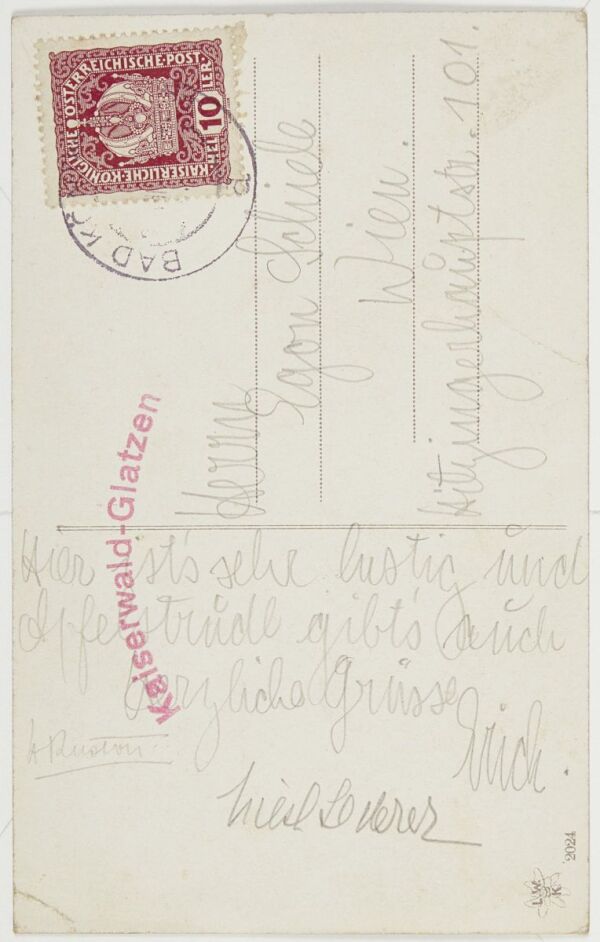 KAISERLICHE·KÖNIGLICHE ÖSTERREICHISCHE·POST
10
HELLER
BAD
Herrn
Egon Schiele
Wien.
Hitzingerhauptstr. 101.
Kaiserwald-Glatzen
Hier ist's sehr lustig und
Apfelstrudl gibt's auch
Herzliche Grüsse
Erich.
Liesl Lederer
L.W.
K
2024